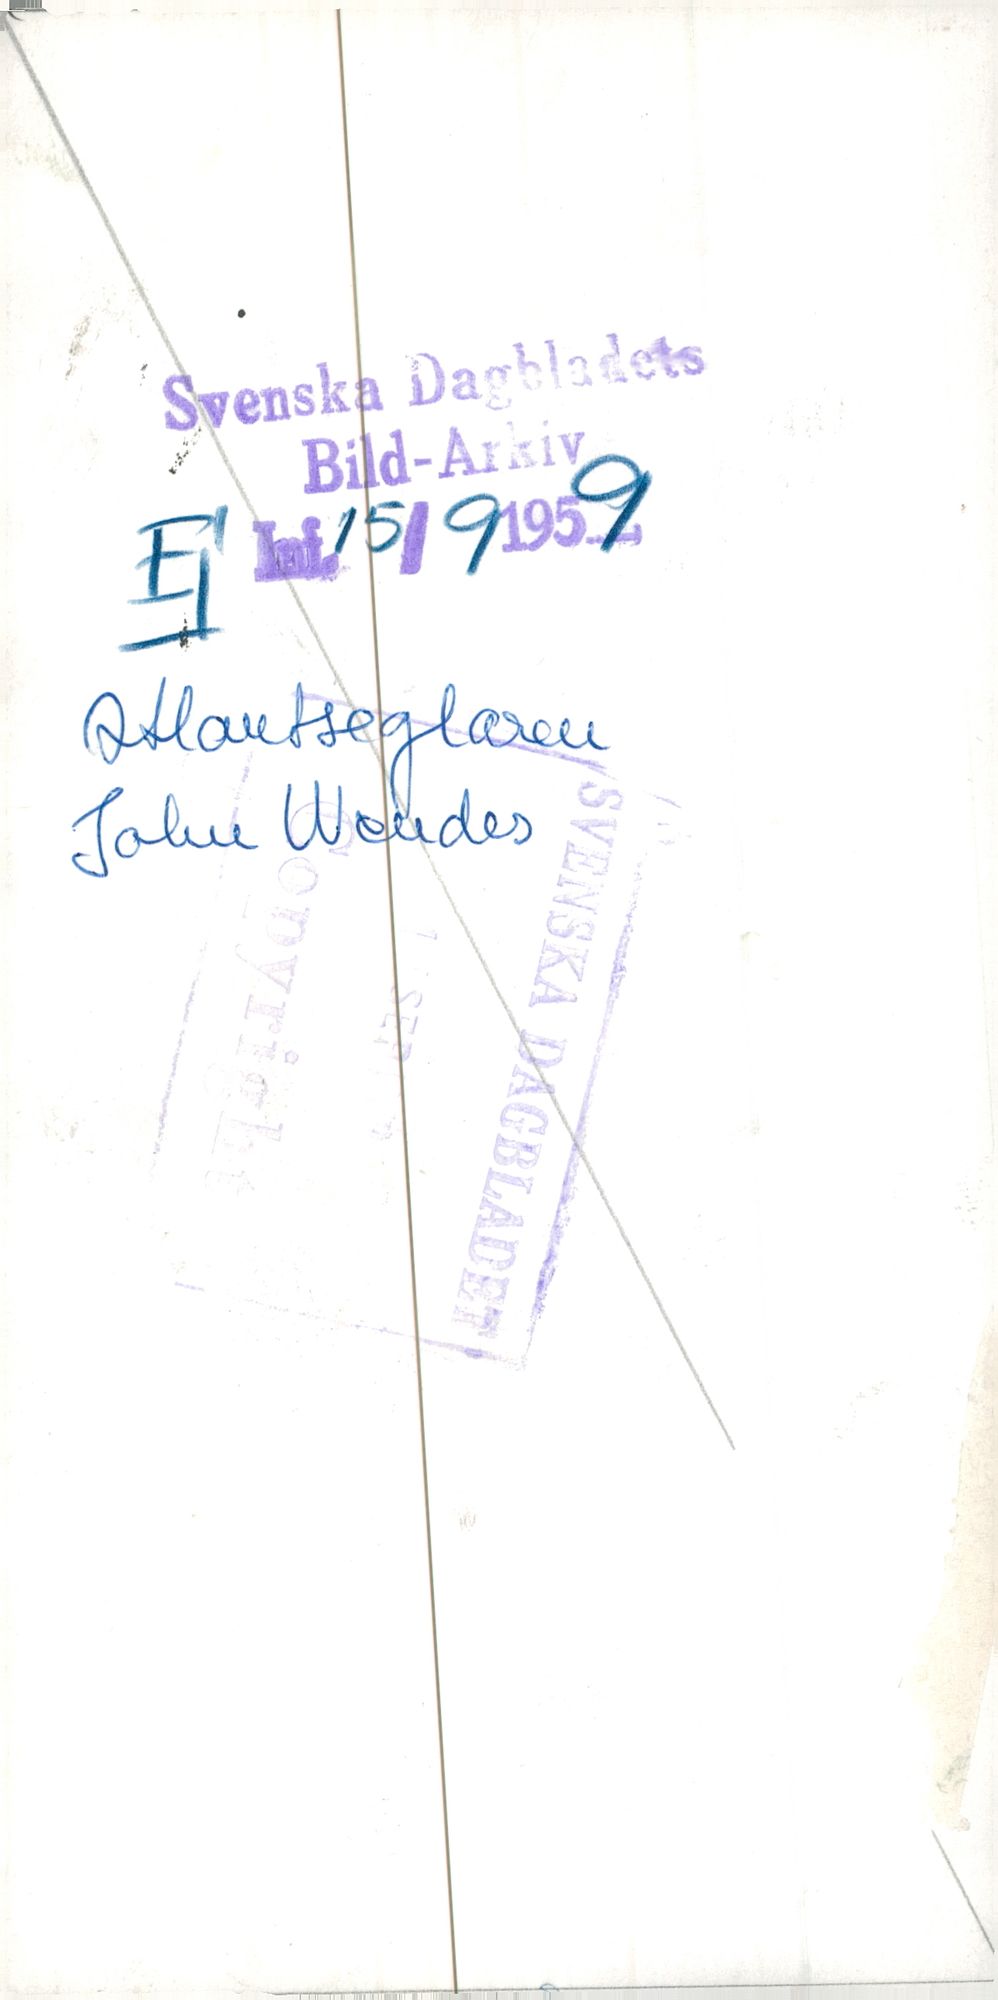 Svenska Dagbladets
Bild-Arkiv
Ej Inf. 15/9 1959
Atlantseglaren
John Wendes
SVENSKA DAGBLADET
SEP
Copyright